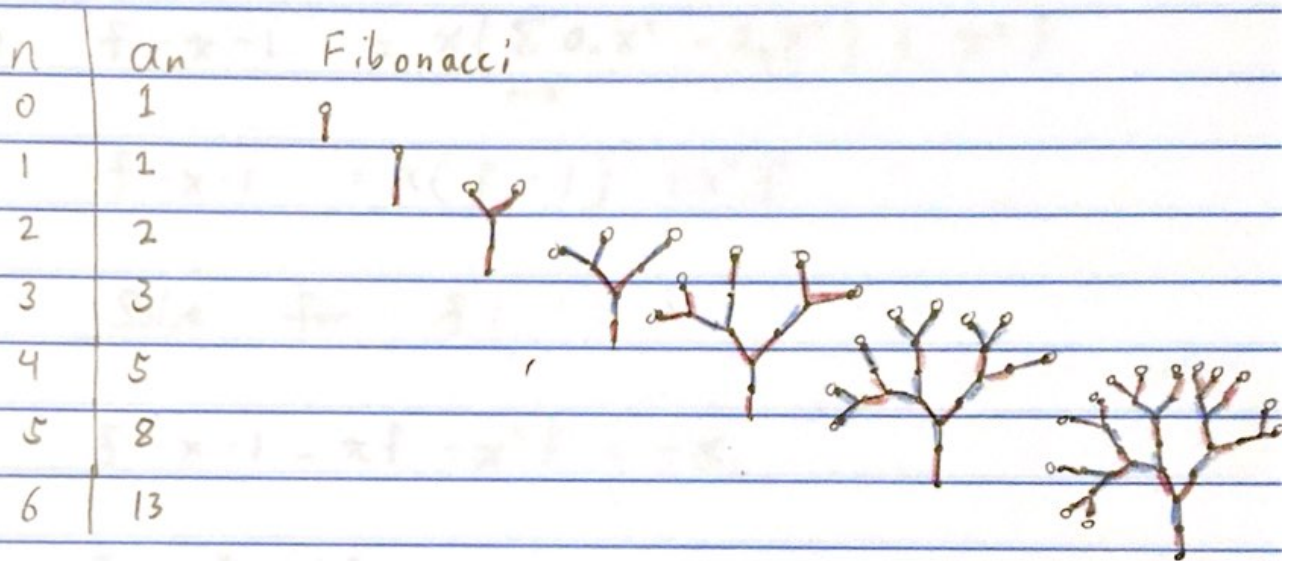 n an Fibonacci
0 1
1 1
2 2
3 3
4 5
5 8
6 13